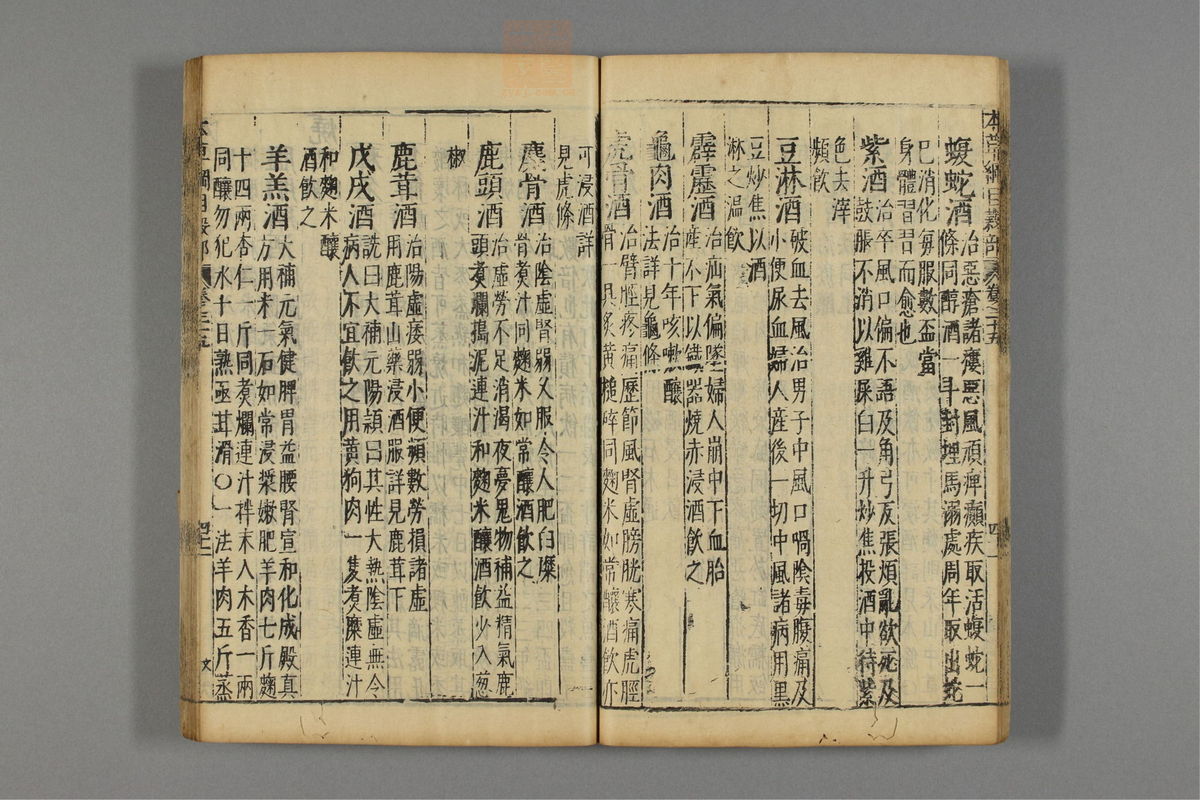 本草綱目穀部 卷二十五 四一
蝮蛇酒
治惡瘡諸瘻惡風頑痺癲疾取活蝮蛇一
條同醇酒一斗封埋馬溺處周年取出蛇
已消化每服數盃當
身體習習而愈也
紫酒
治卒風口偏不語及角弓反張煩亂欲死及
鼓脹不消以雞屎白一升炒焦投酒中待紫
色去滓
頻飲
豆淋酒
破血去風治男子中風口喎陰毒腹痛及
小便尿血婦人産後一切中風諸病用黑
豆炒焦以酒
淋之温飲
霹靂酒
治疝氣偏墜婦人崩中下血胎
産不下以鐵器燒赤浸酒飲之
龜肉酒
治十年咳嗽釀
法詳見龜條
虎骨酒
治臂脛疼痛歷節風腎虛膀胱寒痛虎脛
骨一具炙黃槌碎同麴米如常釀酒飲亦
可浸酒詳
見虎條
麋骨酒
治陰虛腎弱久服令人肥白麋
骨煮汁同麴米如常釀酒飲之
鹿頭酒
治虛勞不足消渴夜夢鬼物補益精氣鹿
頭煮爛搗泥連汁和麴米釀酒飲少入葱
椒
鹿茸酒
治陽虛痿弱小便頻數勞損諸虛
用鹿茸山藥浸酒服詳見鹿茸下
戊戌酒
詵曰大補元陽頴曰其性大熱陰虛無冷
病人不宜飲之用黃狗肉一隻煮糜連汁
和麴米釀
酒飲之
羊羔酒
大補元氣健脾胃益腰腎宣和化成殿真
方用米一石如常浸漿嫩肥羊肉七斤麴
十四兩杏仁一斤同煮爛連汁拌末入木香一兩
同釀勿犯水十日熟亟甘滑〇一法羊肉五斤蒸
本草綱目穀部 卷二十五 四二 文